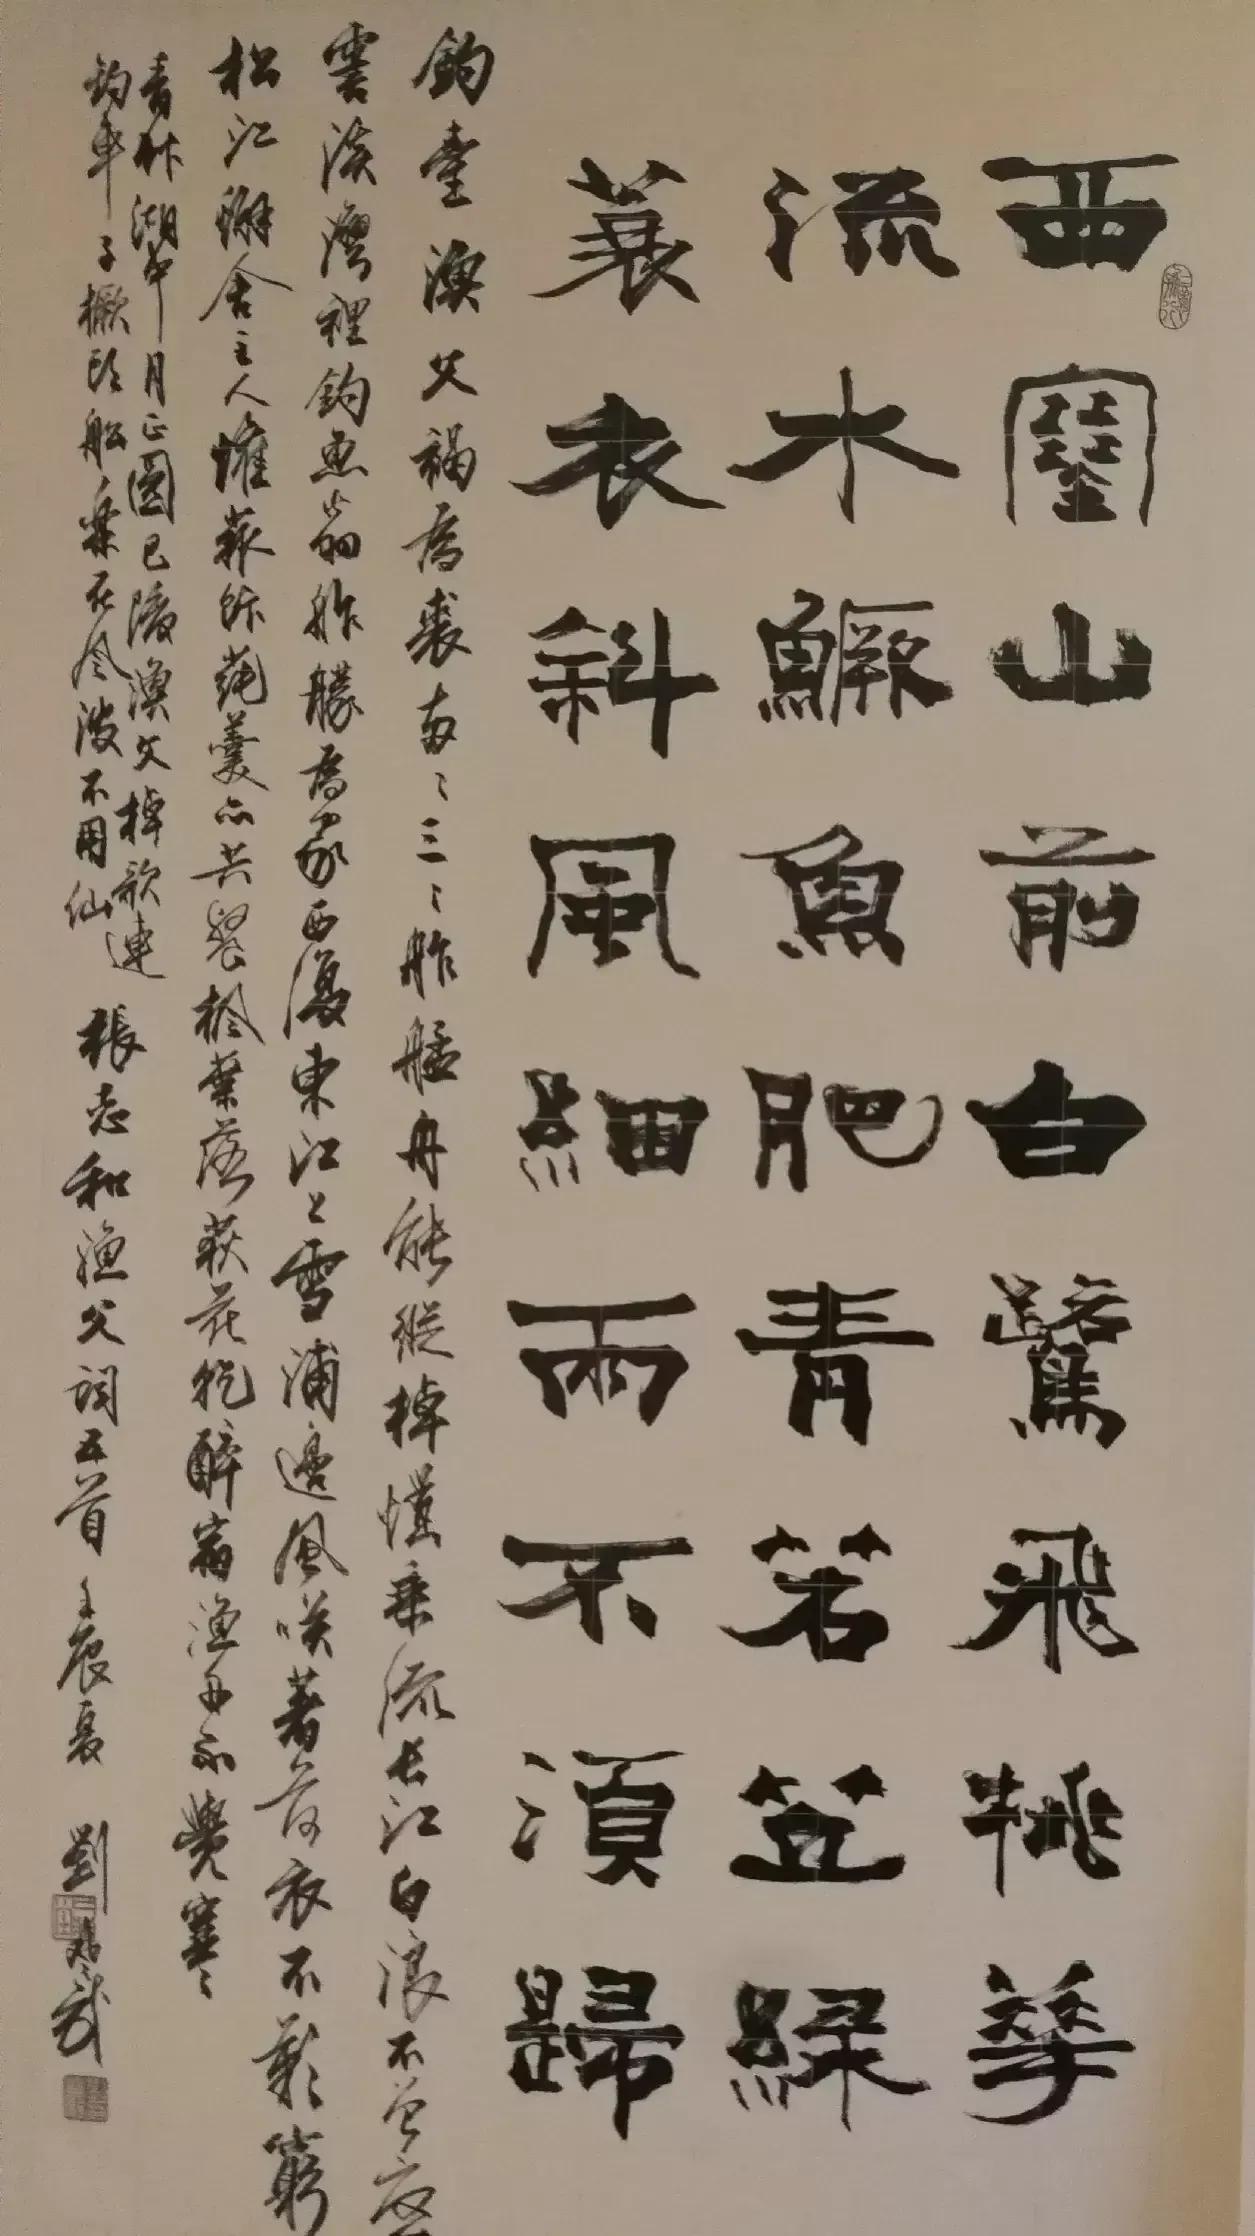 西塞山前白鷺飛桃華
流水鱖魚肥青若笠綠
蓑衣斜風細雨不須歸
釣臺漁父褐為裘兩兩三三舴艋舟能縱棹慣乘流長江白浪不曾憂
雲溪灣裡釣魚翁舴艋為家西復東江上雪浦邊風笑著荷衣不歎窮
松江蟹舍主人懽菰飰蓴羹亦共餐楓葉落荻花乾醉宿漁舟不覺寒
青草湖中月正圓巴陵漁父棹歌連
釣車子橛頭船樂在風波不用仙
張志和漁父詞五首 壬辰夏 劉